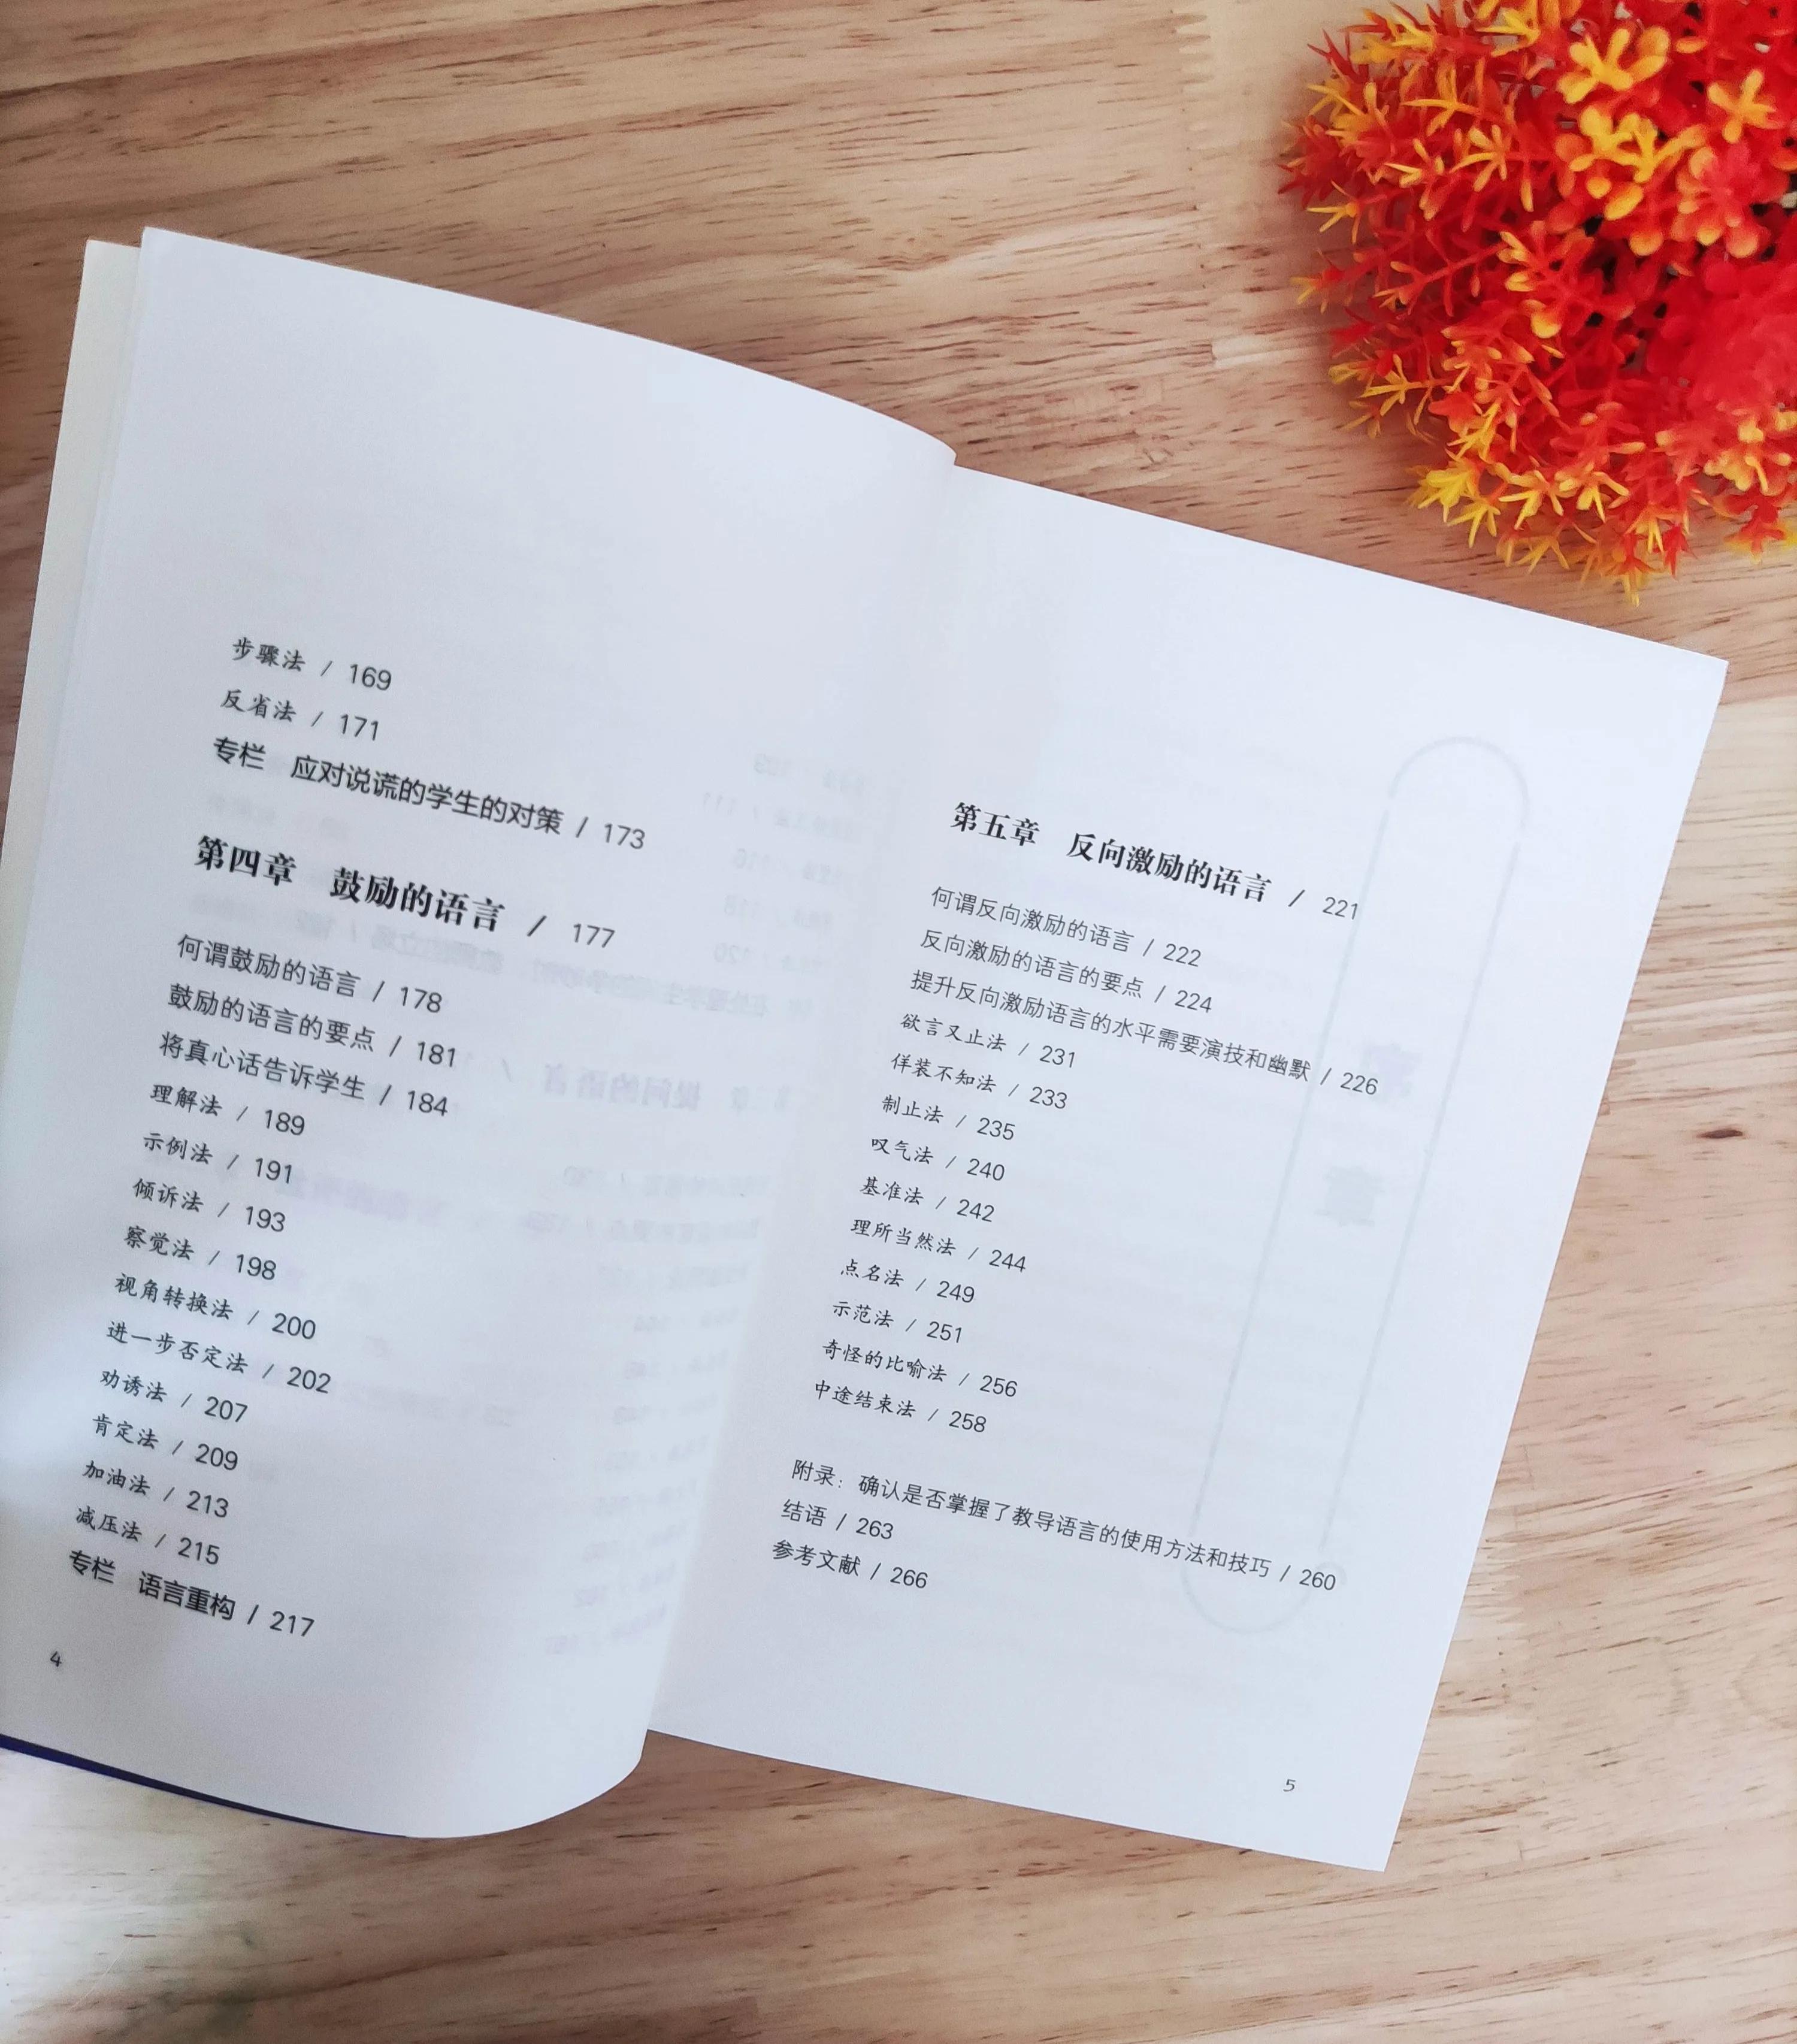 步骤法 / 169
反省法 / 171
专栏 应对说谎的学生的对策 / 173
第四章 鼓励的语言 / 177
何谓鼓励的语言 / 178
鼓励的语言的要点 / 181
将真心话告诉学生 / 184
理解法 / 189
示例法 / 191
倾诉法 / 193
察觉法 / 198
视角转换法 / 200
进一步否定法 / 202
劝诱法 / 207
肯定法 / 209
加油法 / 213
减压法 / 215
专栏 语言重构 / 217
4
第五章 反向激励的语言 / 221
何谓反向激励的语言 / 222
反向激励的语言的要点 / 224
提升反向激励语言的水平需要演技和幽默 / 226
欲言又止法 / 231
佯装不知法 / 233
制止法 / 235
叹气法 / 240
基准法 / 242
理所当然法 / 244
点名法 / 249
示范法 / 251
奇怪的比喻法 / 256
中途结束法 / 258
附录：确认是否掌握了教导语言的使用方法和技巧 / 260
结语 / 263
参考文献 / 266
5